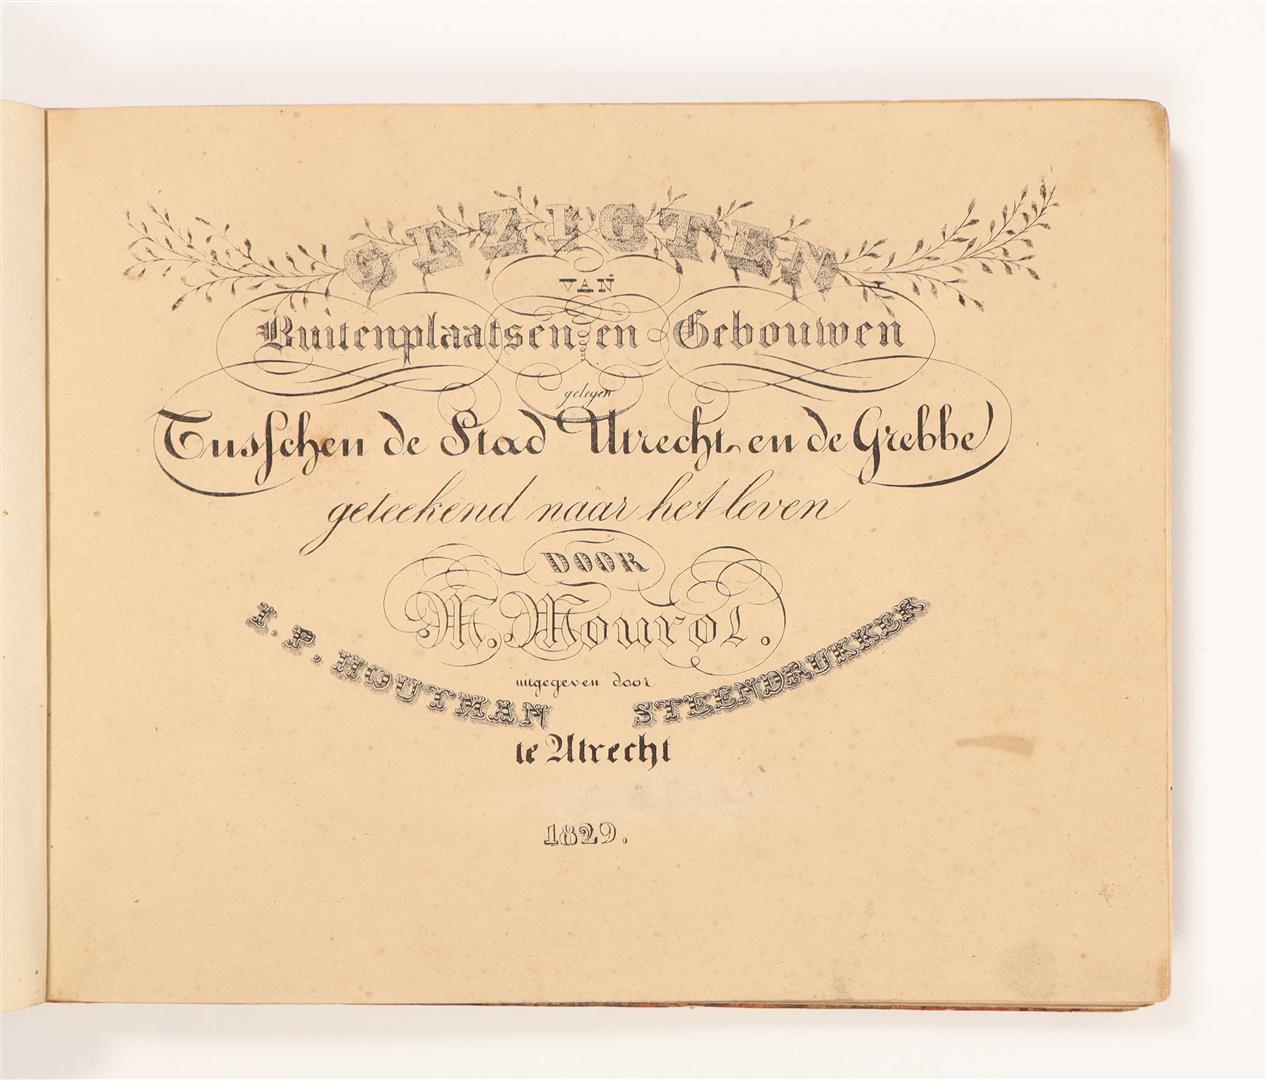 GEZIGTEN
VAN
Buitenplaatsen en Gebouwen
gelegen
Tusschen de Stad Utrecht en de Grebbe
geteekend naar het leven
DOOR
M. Mourot.
uitgegeven door
I. P. HOUTMAN STEENDRUKKER
te Utrecht
1829.